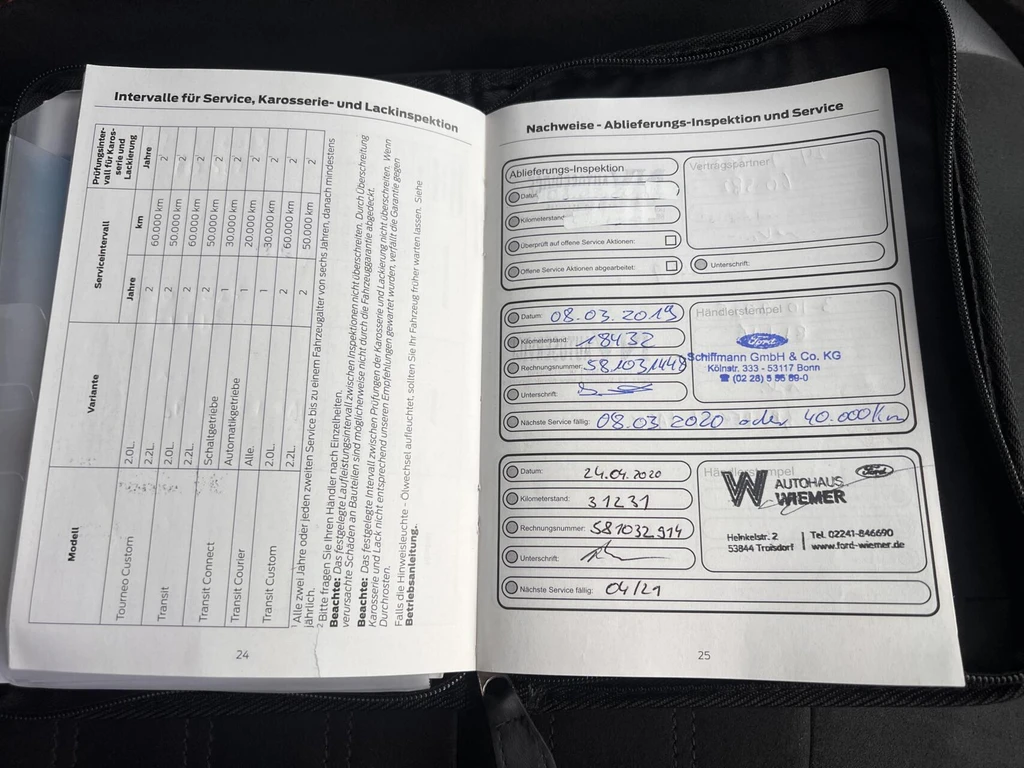 Intervalle für Service, Karosserie- und Lackinspektion
Modell
Variante
Serviceintervall
Prüfungsinter-
vall für Karos-
serie und
Lackierung
Jahre
km
Jahre
Tourneo Custom
2.0L 2 60.000 km 2
2.2L 2 50.000 km 2
Transit
2.0L 2 60.000 km 2
2.2L 2 50.000 km 2
Transit Connect
Schaltgetriebe 1 30.000 km 2
Automatikgetriebe 1 20.000 km 2
Transit Courier
Alle. 1 30.000 km 2
Transit Custom
2.0L 2 60.000 km 2
2.2L. 2 50.000 km 2
1 Alle zwei Jahre oder jeden zweiten Service bis zu einem Fahrzeugalter von sechs Jahren, danach mindestens
jährlich.
2 Bitte fragen Sie Ihren Händler nach Einzelheiten.
Beachte: Das festgelegte Laufleistungsintervall zwischen Inspektionen nicht überschreiten. Durch Überschreitung
verursachte Schäden an Bauteilen sind möglicherweise nicht durch die Fahrzeuggarantie abgedeckt.
Beachte: Das festgelegte Intervall zwischen Prüfungen der Karosserie und Lackierung nicht überschreiten. Wenn
Karosserie und Lack nicht entsprechend unseren Empfehlungen gewartet wurden, verfällt die Garantie gegen
Durchrosten.
Falls die Hinweisleuchte - Ölwechsel aufleuchtet, sollten Sie Ihr Fahrzeug früher warten lassen. Siehe
Betriebsanleitung.
24
Nachweise - Ablieferungs-Inspektion und Service
Ablieferungs-Inspektion
Vertragspartner
Datum:
Kilometerstand:
Überprüft auf offene Service Aktionen:
Offene Service Aktionen abgearbeitet:
Unterschrift:
Datum: 08.03.2019
Kilometerstand: 18432
Rechnungsnummer: 581031448
Unterschrift:
Händlerstempel
Ford
Schiffmann GmbH & Co. KG
Kölnstr. 333 - 53117 Bonn
☎ (02 28) 5 56 89-0
Nächste Service fällig: 08.03 2020 oder 40.000Km
Datum: 24.04.2020
Kilometerstand: 31231
Rechnungsnummer: 581032914
Unterschrift:
Händlerstempel
Ford
W AUTOHAUS
WIEMER
Heinkelstr. 2
53844 Troisdorf
Tel. 02241-846690
www.ford-wiemer.de
Nächste Service fällig: 04/21
25